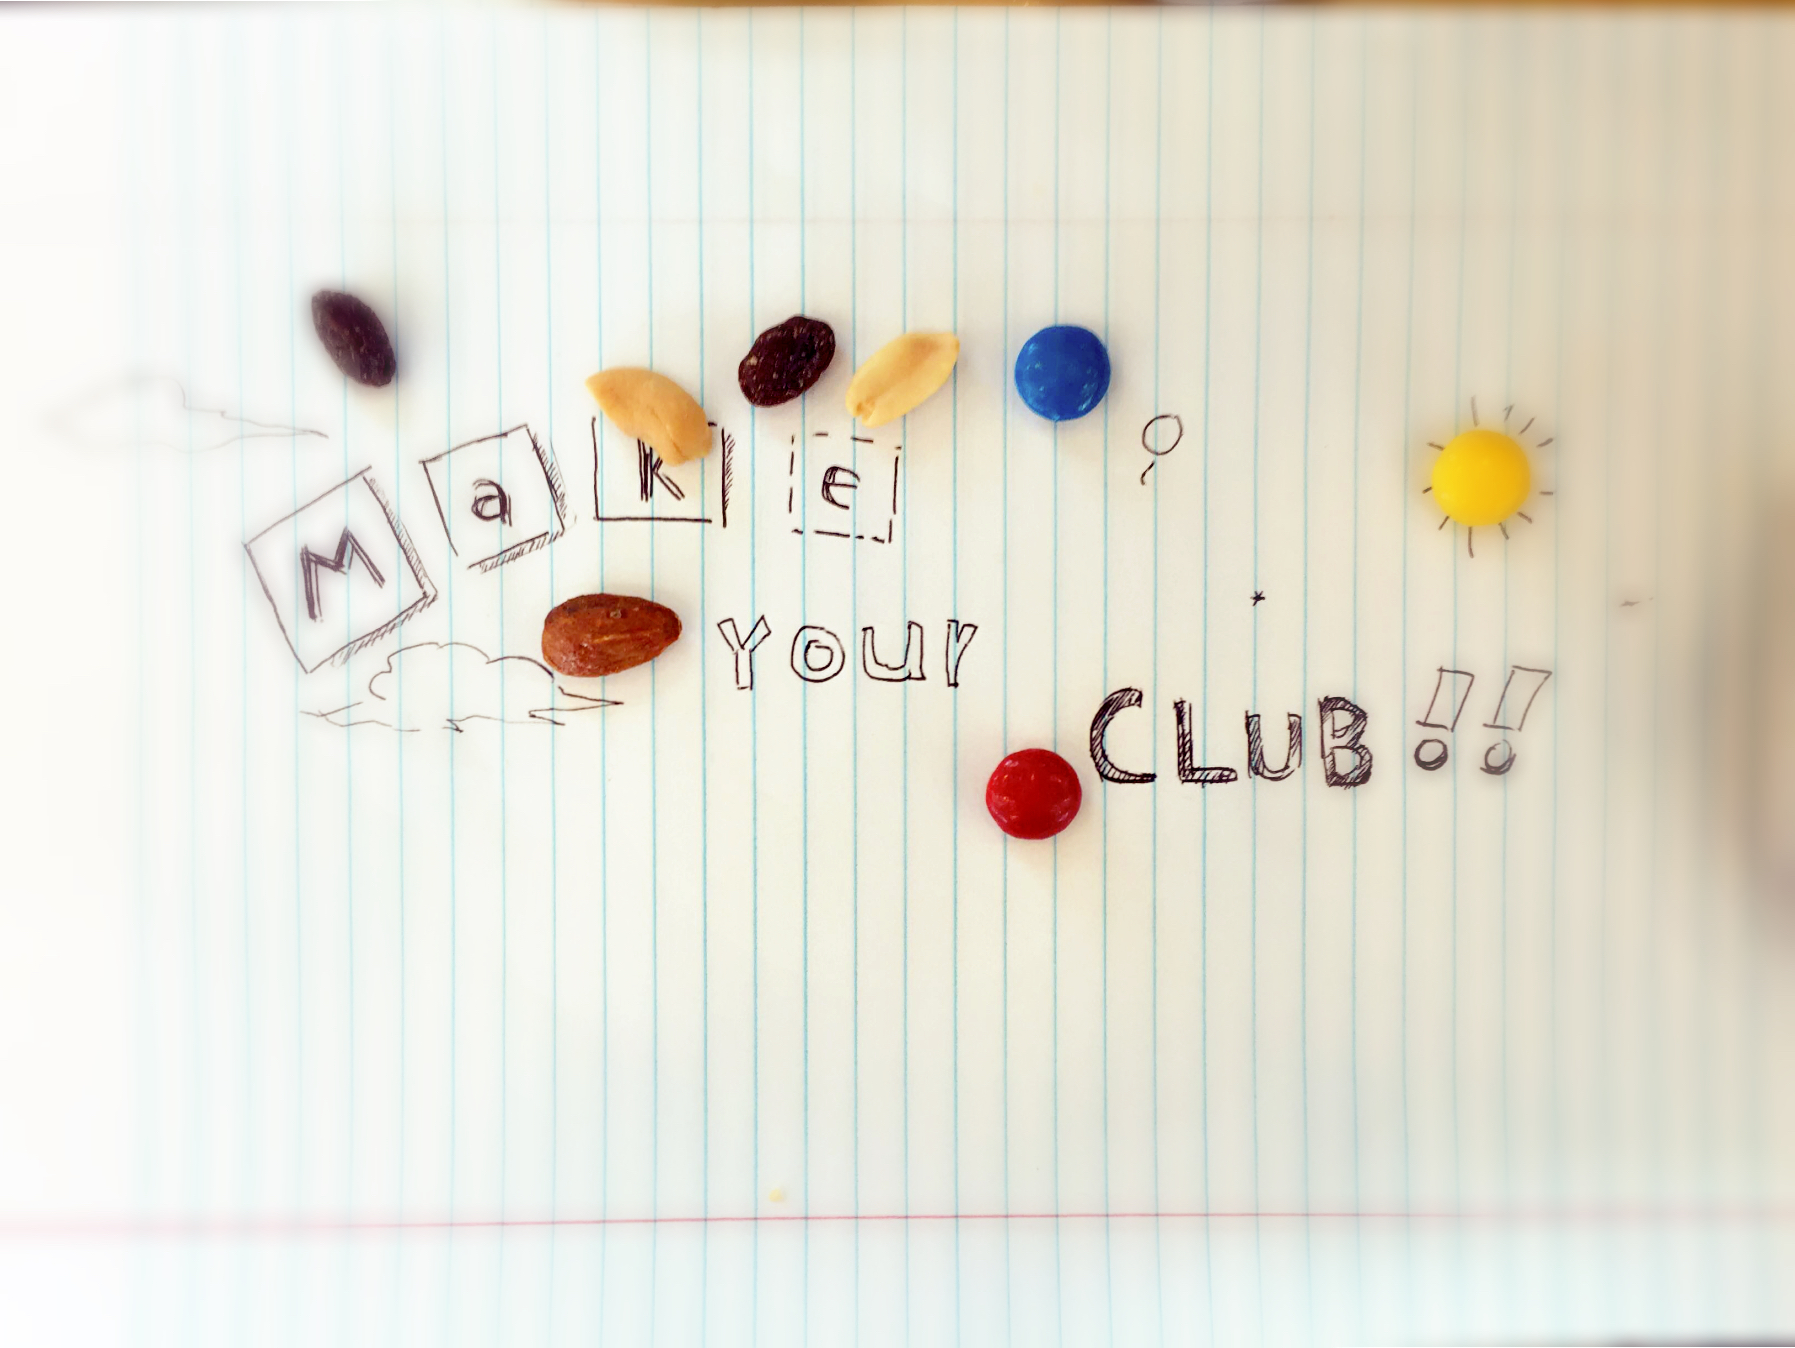 MaKe
Your
CLuB!!